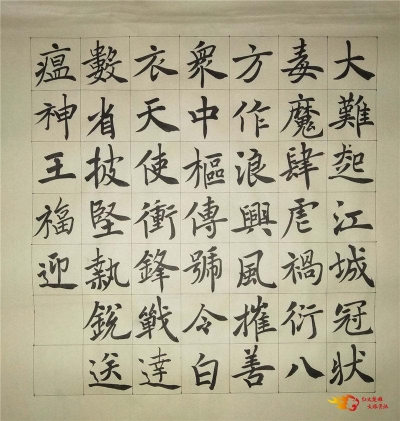 大難起江城冠狀
毒魔肆虐禍衍八
方作浪興風摧善
衆中樞傳號令白
衣天使衝鋒戰達
數省披堅執銳送
瘟神王福迎